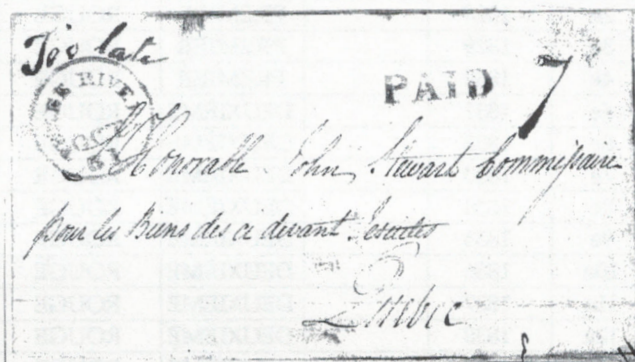 Too late
THREE RIVERS
OCT
PAID 7
L'Honorable John Stewart Commissaire
pour les Biens des ci devant Jesuites
Quebec